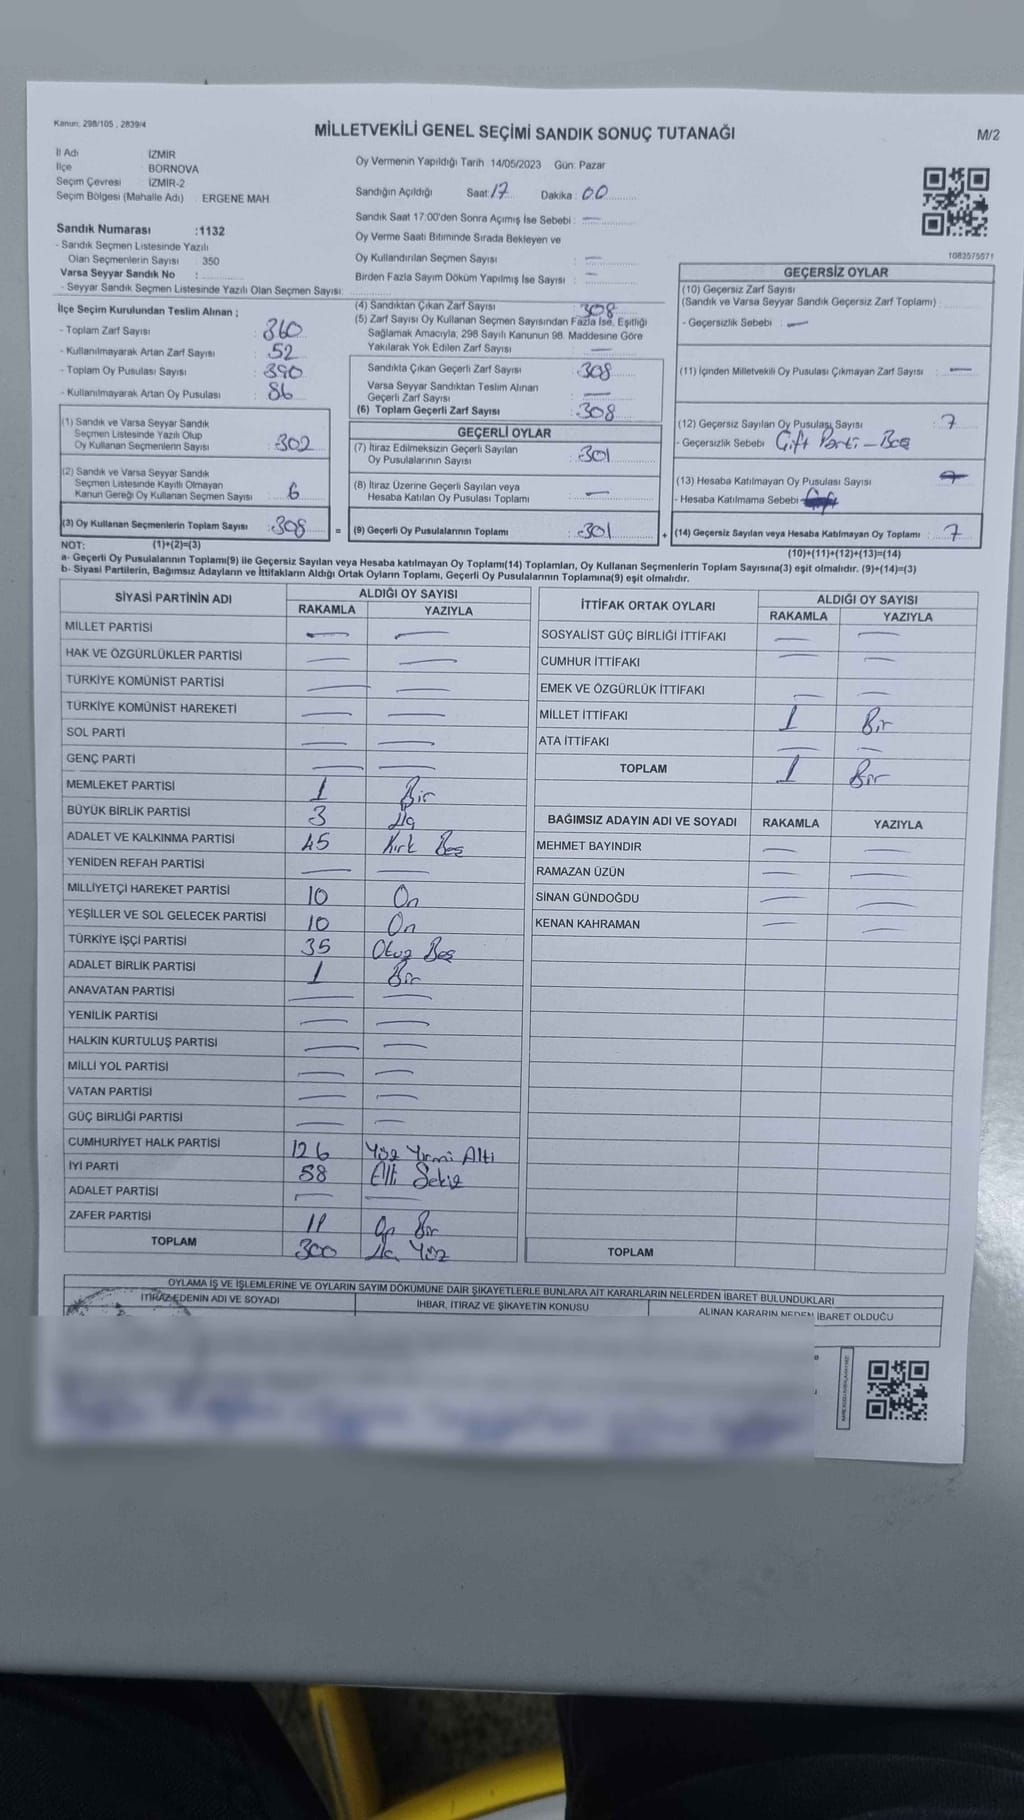 Kanun: 298/105 , 2839/4
MİLLETVEKİLİ GENEL SEÇİMİ SANDIK SONUÇ TUTANAĞI
M/2
İl Adı İZMİR
İlçe BORNOVA
Seçim Çevresi İZMİR-2
Seçim Bölgesi (Mahalle Adı) ERGENE MAH
Oy Vermenin Yapıldığı Tarih 14/05/2023 Gün: Pazar
Sandığın Açıldığı Saat: 17 Dakika : 00
Sandık Saat 17:00'den Sonra Açımış İse Sebebi : —
Oy Verme Saati Bitiminde Sırada Bekleyen ve
Oy Kullandırılan Seçmen Sayısı : —
Birden Fazla Sayım Döküm Yapılmış İse Sayısı : —
1082575571
Sandık Numarası :1132
- Sandık Seçmen Listesinde Yazılı
Olan Seçmenlerin Sayısı : 350
Varsa Seyyar Sandık No :
- Seyyar Sandık Seçmen Listesinde Yazılı Olan Seçmen Sayısı:
İlçe Seçim Kurulundan Teslim Alınan ;
- Toplam Zarf Sayısı : 360
- Kullanılmayarak Artan Zarf Sayısı : 52
- Toplam Oy Pusulası Sayısı : 390
- Kullanılmayarak Artan Oy Pusulası : 86
(1) Sandık ve Varsa Seyyar Sandık
Seçmen Listesinde Yazılı Olup
Oy Kullanan Seçmenlerin Sayısı : 302
(2) Sandık ve Varsa Seyyar Sandık
Seçmen Listesinde Kayıtlı Olmayan
Kanun Gereği Oy Kullanan Seçmen Sayısı : 6
(3) Oy Kullanan Seçmenlerin Toplam Sayısı : 308
(1)+(2)=(3)
(4) Sandıktan Çıkan Zarf Sayısı : 308
(5) Zarf Sayısı Oy Kullanan Seçmen Sayısından Fazla İse, Eşitliği
Sağlamak Amacıyla, 298 Sayılı Kanunun 98. Maddesine Göre
Yakılarak Yok Edilen Zarf Sayısı : —
Sandıkta Çıkan Geçerli Zarf Sayısı : 308
Varsa Seyyar Sandıktan Teslim Alınan
Geçerli Zarf Sayısı : —
(6) Toplam Geçerli Zarf Sayısı : 308
GEÇERLİ OYLAR
(7) İtiraz Edilmeksizin Geçerli Sayılan
Oy Pusulalarının Sayısı : 301
(8) İtiraz Üzerine Geçerli Sayılan veya
Hesaba Katılan Oy Pusulası Toplamı : —
= (9) Geçerli Oy Pusulalarının Toplamı : 301
GEÇERSİZ OYLAR
(10) Geçersiz Zarf Sayısı
(Sandık ve Varsa Seyyar Sandık Geçersiz Zarf Toplamı) :
- Geçersizlik Sebebi : —
(11) İçinden Milletvekili Oy Pusulası Çıkmayan Zarf Sayısı : —
(12) Geçersiz Sayılan Oy Pusulası Sayısı : 7
- Geçersizlik Sebebi : Çift Parti - Boş
(13) Hesaba Katılmayan Oy Pusulası Sayısı :
- Hesaba Katılmama Sebebi :
+ (14) Geçersiz Sayılan veya Hesaba Katılmayan Oy Toplamı : 7
(10)+(11)+(12)+(13)=(14)
NOT:
a- Geçerli Oy Pusulalarının Toplamı(9) ile Geçersiz Sayılan veya Hesaba katılmayan Oy Toplamı(14) Toplamları, Oy Kullanan Seçmenlerin Toplam Sayısına(3) eşit olmalıdır. (9)+(14)=(3)
b- Siyasi Partilerin, Bağımsız Adayların ve İttifakların Aldığı Ortak Oyların Toplamı, Geçerli Oy Pusulalarının Toplamına(9) eşit olmalıdır.
SİYASİ PARTİNİN ADI ALDIĞI OY SAYISI
RAKAMLA YAZIYLA
MİLLET PARTİSİ — —
HAK VE ÖZGÜRLÜKLER PARTİSİ — —
TÜRKİYE KOMÜNİST PARTİSİ — —
TÜRKİYE KOMÜNİST HAREKETİ — —
SOL PARTİ — —
GENÇ PARTİ — —
MEMLEKET PARTİSİ 1 Bir
BÜYÜK BİRLİK PARTİSİ 3 Üç
ADALET VE KALKINMA PARTİSİ 45 Kırk Beş
YENİDEN REFAH PARTİSİ — —
MİLLİYETÇİ HAREKET PARTİSİ 10 On
YEŞİLLER VE SOL GELECEK PARTİSİ 10 On
TÜRKİYE İŞÇİ PARTİSİ 35 Otuz Beş
ADALET BİRLİK PARTİSİ 1 Bir
ANAVATAN PARTİSİ — —
YENİLİK PARTİSİ — —
HALKIN KURTULUŞ PARTİSİ — —
MİLLİ YOL PARTİSİ — —
VATAN PARTİSİ — —
GÜÇ BİRLİĞİ PARTİSİ — —
CUMHURİYET HALK PARTİSİ 126 Yüz Yirmi Altı
İYİ PARTİ 58 Elli Sekiz
ADALET PARTİSİ — —
ZAFER PARTİSİ 11 On Bir
TOPLAM 300 Üç Yüz
İTTİFAK ORTAK OYLARI ALDIĞI OY SAYISI
RAKAMLA YAZIYLA
SOSYALİST GÜÇ BİRLİĞİ İTTİFAKI — —
CUMHUR İTTİFAKI — —
EMEK VE ÖZGÜRLÜK İTTİFAKI — —
MİLLET İTTİFAKI 1 Bir
ATA İTTİFAKI — —
TOPLAM 1 Bir
BAĞIMSIZ ADAYIN ADI VE SOYADI RAKAMLA YAZIYLA
MEHMET BAYINDIR — —
RAMAZAN ÜZÜN — —
SİNAN GÜNDOĞDU — —
KENAN KAHRAMAN — —
TOPLAM
OYLAMA İŞ VE İŞLEMLERİNE VE OYLARIN SAYIM DÖKÜMÜNE DAİR ŞİKAYETLERLE BUNLARA AİT KARARLARIN NELERDEN İBARET BULUNDUKLARI
İTİRAZ EDENİN ADI VE SOYADI İHBAR, İTİRAZ VE ŞİKAYETİN KONUSU ALINAN KARARIN NEDEN İBARET OLDUĞU